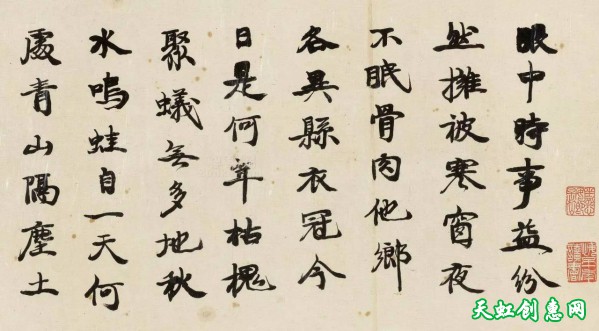 眼中時事益紛
然擁被寒窗夜
不眠骨肉他鄉
各異縣衣冠今
日是何年枯槐
聚蟻無多地秋
水鳴蛙自一天何
處青山隔塵土
天虹创惠网